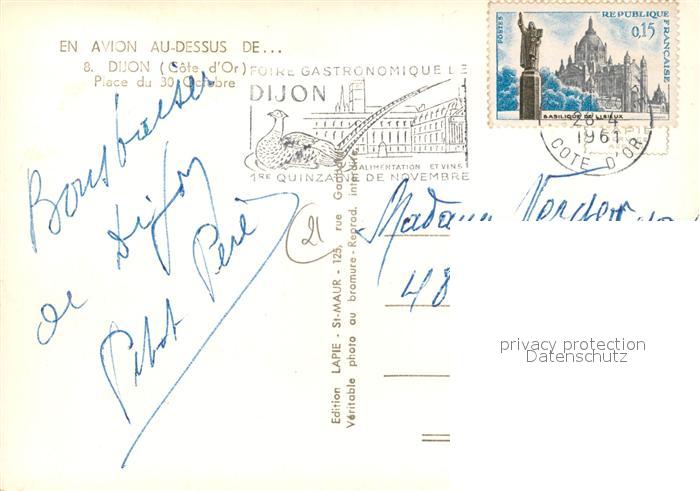 EN AVION AU-DESSUS DE...
8. DIJON (Côte d'Or)
Place du 30 Octobre
FOIRE GASTRONOMIQUE DE
DIJON
ALIMENTATION ET VINS
1RE QUINZAINE DE NOVEMBRE
POSTES
REPUBLIQUE FRANÇAISE
0,15
BASILIQUE DE LISIEUX
28-4
1961
COTE D'OR
Bons baisers
de Dijon
Père
21
Madame
48
Edition LAPIE - St-MAUR - 125, rue Garibaldi
Véritable photo au bromure - Reprod. interdite.
privacy protection
Datenschutz